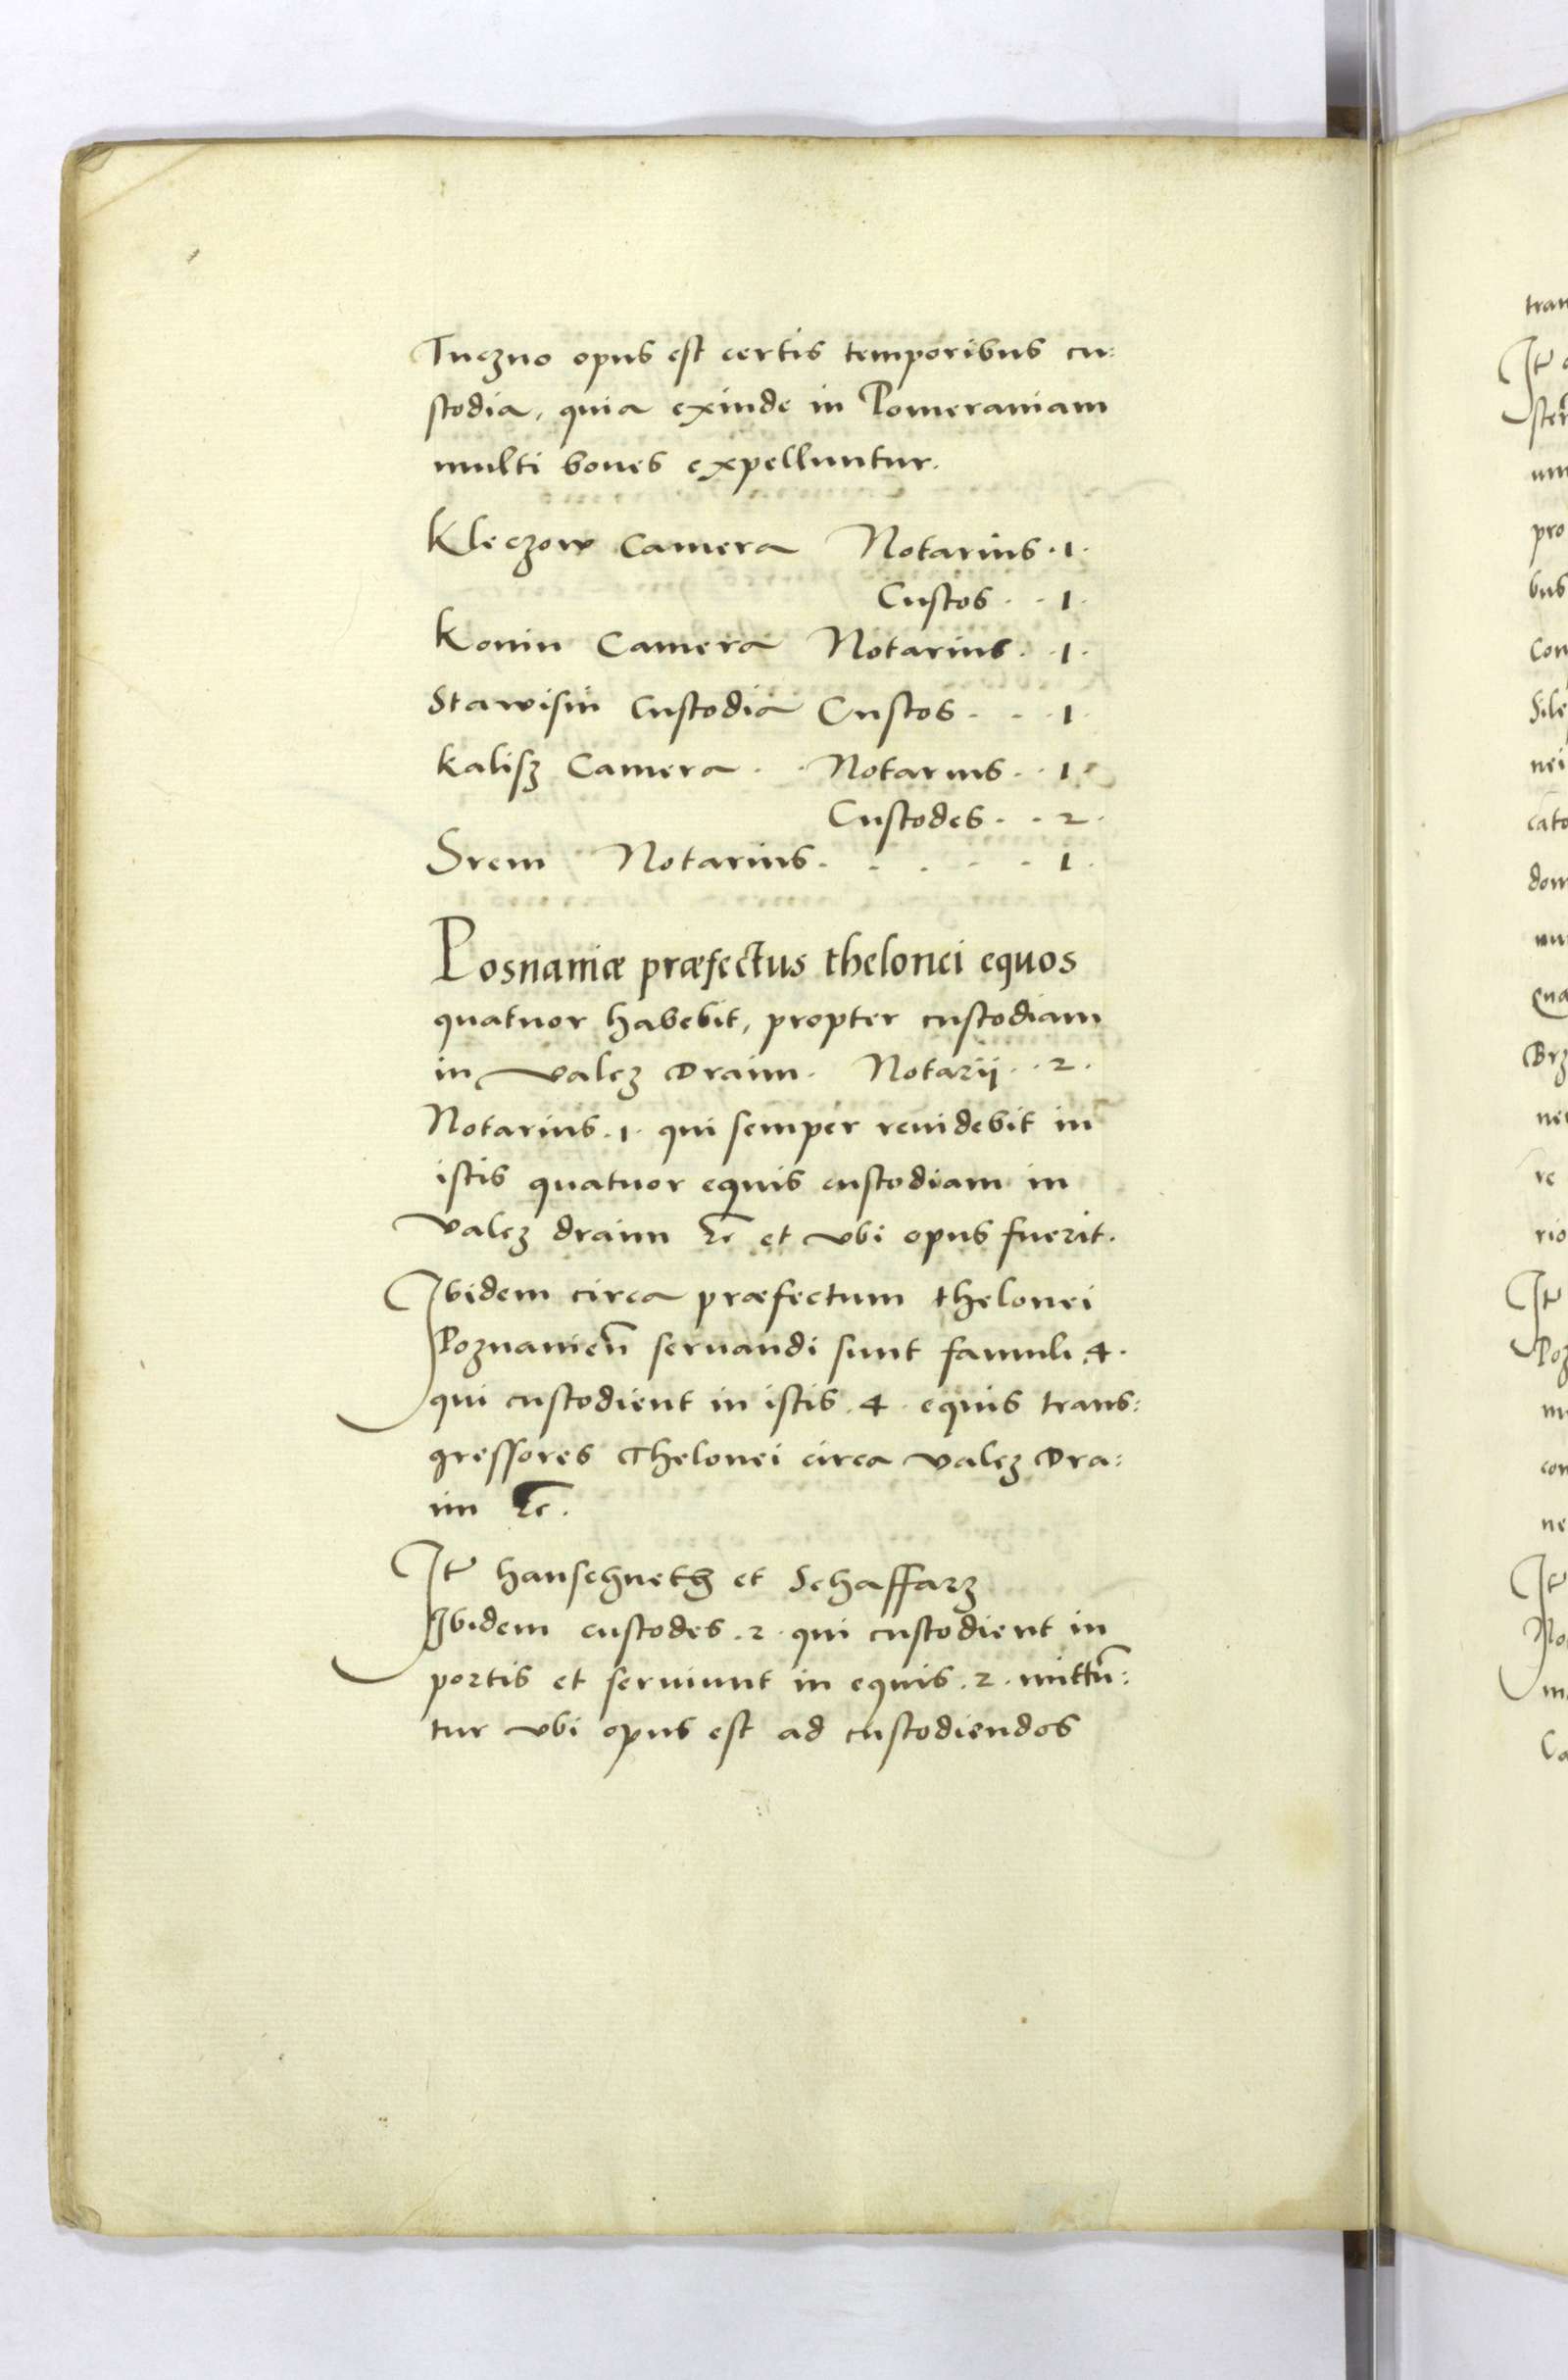 Tuczno opus est certis temporibus cu:
stodia, quia exinde in Pomeraniam
multi boues expelluntur.
Kleczow Camera Notarius . 1 .
Custos . . 1 .
Konin Camera Notarius . . 1 .
Stawisin Custodia Custos . . . 1 .
Kalisz Camera . . Notarius . . 1 .
Custodes . . 2 .
Srem Notarius . . . . . 1 .
Posnaniæ præfectus thelonei equos
quatuor habebit, propter custodiam
in Valcz Draim . Notarij . . 2 .
Notarius . 1 . qui semper reuidebit in
istis quatuor equis custodiam in
Valcz draim &c et vbi opus fuerit .
Ibidem circa præfectum thelonei
Poznanien̄ seruandi sunt famuli . 4 .
qui custodient in istis . 4 . equis trans:
gressores Thelonei circa Valcz Dra:
im &c .
It̄ hauschneth et Schaffarz
Ibidem custodes . 2 . qui custodient in
portis et seruiunt in equis . 2 . mittū:
tur vbi opus est ad custodiendos
tran
It̄
pro
bus
con
Sile
nei
cato
dom
Brz
re
rio
It̄
Poz
con
ne
It̄
No
Ca